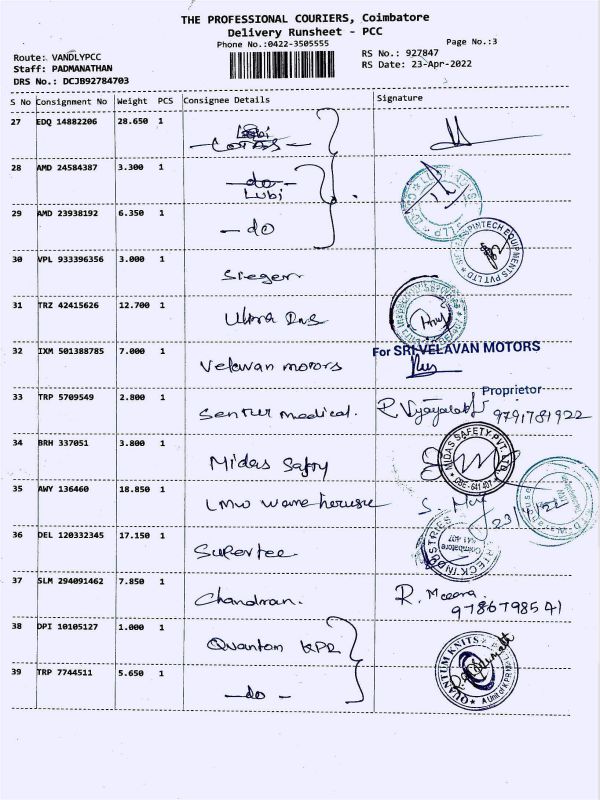 THE PROFESSIONAL COURIERS, Coimbatore
Delivery Runsheet - PCC
Phone No.:0422-3505555
Page No.:3
Route: VANDLYPCC
RS No.: 927847
Staff: PADMANATHAN
RS Date: 23-Apr-2022
DRS No.: DCJB92784703
S No Consignment No Weight PCS Consignee Details Signature
27 EDQ 14882206 28.650 1
28 AMD 24584387 3.300 1 do
Lubi
29 AMD 23938192 6.350 1 - do
30 VPL 933396356 3.000 1 Sieger
SPINTECH EQUIPMENTS PVT LTD
31 TRZ 42415626 12.700 1 Ultra
32 IXM 501388785 7.000 1 Velavan motors
For SRI VELAVAN MOTORS
Proprietor
33 TRP 5709549 2.800 1 medical. 9791781922
34 BRH 337051 3.800 1 Midas Safty
MIDAS SAFETY PVT. LTD.
CBE - 641 407
35 AWY 136460 18.850 1 LMW
36 DEL 120332345 17.150 1 Supertec
INDUSTRIES
Coimbatore
641 407
37 SLM 294091462 7.850 1 Chandran. R. Meena
9786798541
38 DPI 10105127 1.000 1 Quantom KPR
39 TRP 7744511 5.650 1 - do -
QUANTUM KNITS